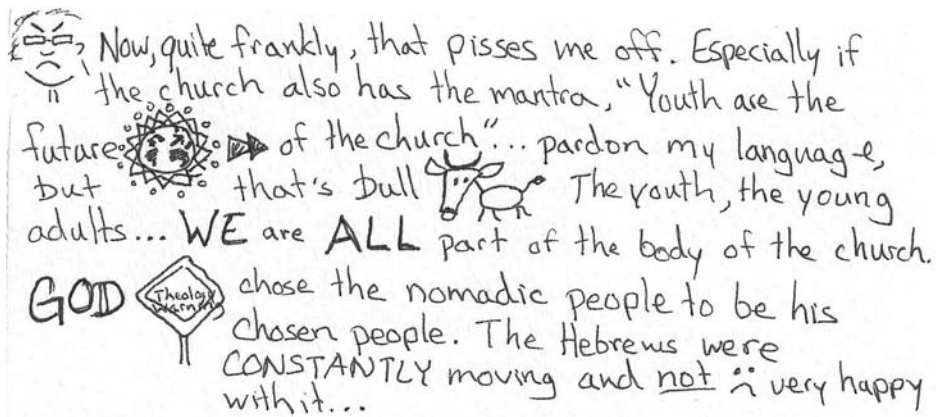 Now, quite frankly, that pisses me off. Especially if
the church also has the mantra, "Youth are the
future of the church"... pardon my language,
but that's bull The youth, the young
adults... WE are ALL part of the body of the church.
GOD Theology Warning chose the nomadic people to be his
chosen people. The Hebrews were
CONSTANTLY moving and not very happy
with it...